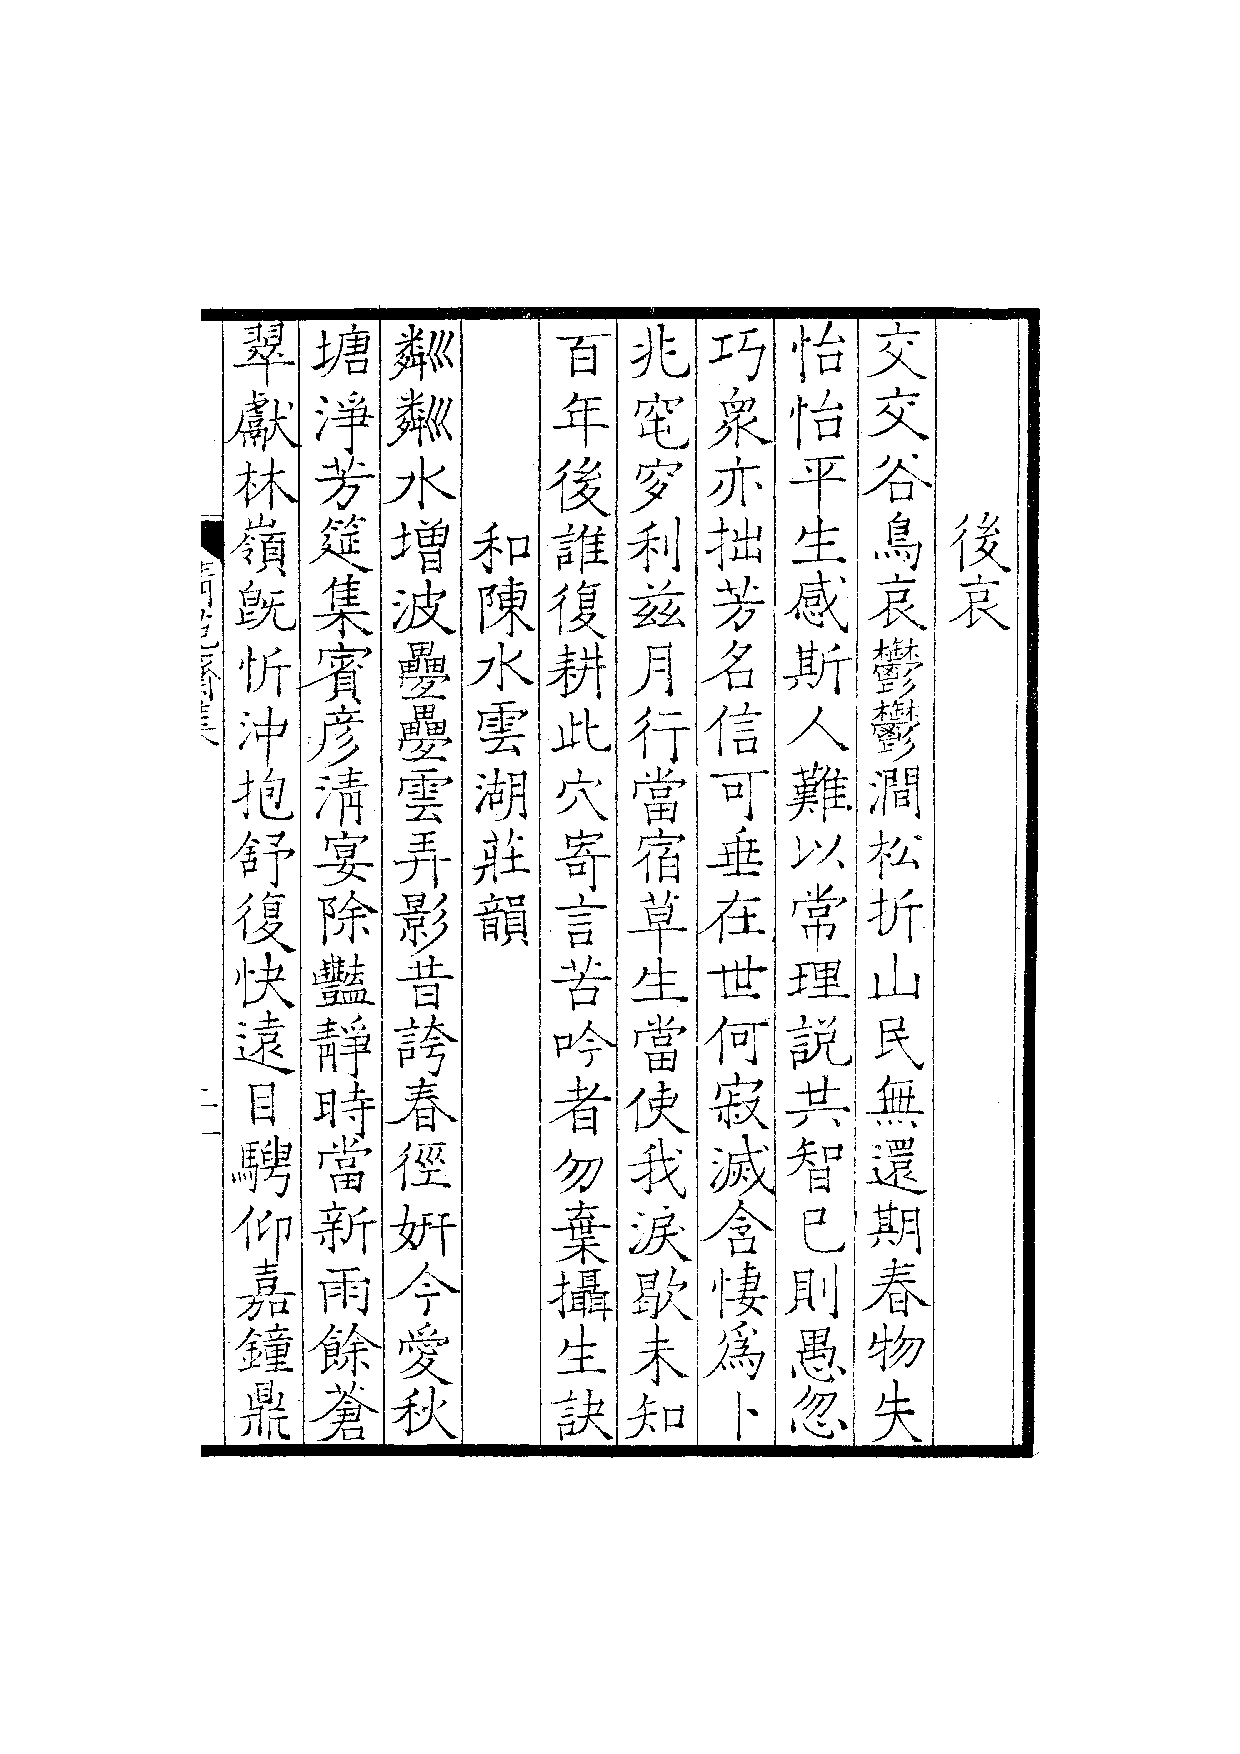 後哀
交交谷鳥哀鬱鬱澗松折山民無還期春物失
怡怡平生感斯人難以常理説共智已則愚忽
巧衆亦拙芳名信可垂在世何寂滅含悽爲卜
兆窀穸利兹月行當宿草生當使我淚歇未知
百年後誰復耕此穴寄言苦吟者勿棄攝生訣
和陳水雲湖莊韻
粼粼水增波疊疊雲弄影昔誇春徑姸今愛秋
塘淨芳筵集賓彦清宴除豔靜時當新雨餘蒼
翠獻林嶺旣忻沖抱舒復快遠目騁仰嘉鐘鼎